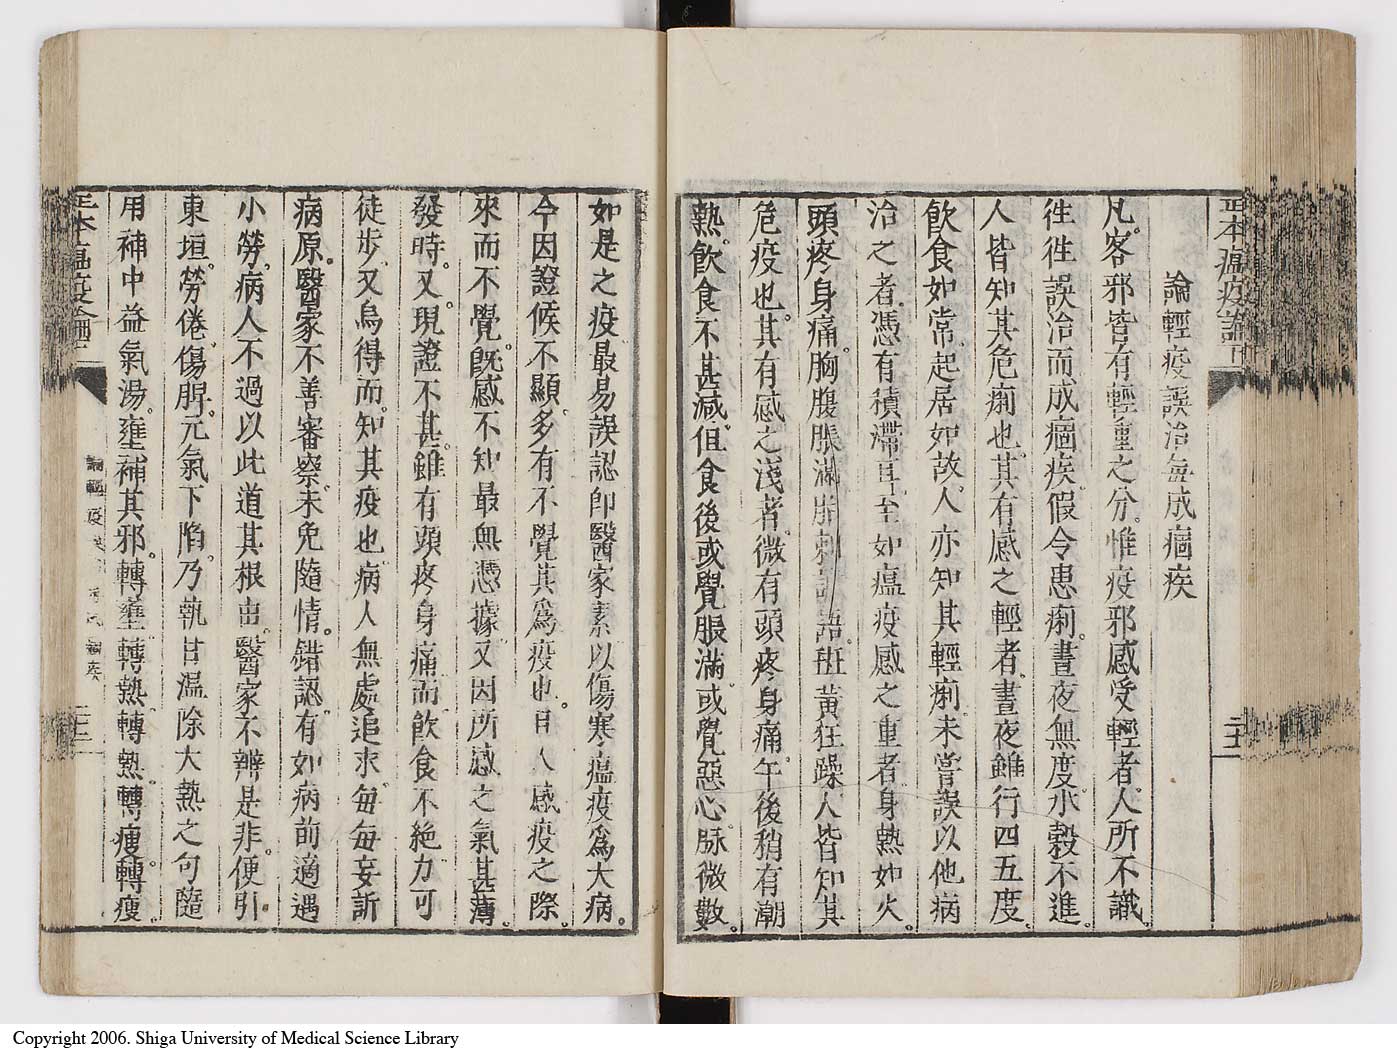 正本瘟疫論下
論輕疫誤治每成痼疾
凡客邪皆有輕重之分惟疫邪感受輕者人所不識
徃徃誤治而成痼疾假令患痢晝夜無度水穀不進
人皆知其危痢也其有感之輕者晝夜雖行四五度
飲食如常起居如故人亦知其輕痢未嘗誤以他病
治之者憑有積滯耳至如瘟疫感之重者身熱如火
頭疼身痛胸腹脹滿胎刺譫語斑黃狂躁人皆知其
危疫也其有感之淺者微有頭疼身痛午後稍有潮
熱飲食不甚減但食後或覺脹滿或覺惡心脉微數
如是之疫最易誤認卽醫家素以傷寒瘟疫爲大病
今因證候不顯多有不覺其爲疫也且人感疫之際
來而不覺旣感不知最無憑據又因所感之氣甚薄
發時又現證不甚雖有頭疼身痛而飲食不絶力可
徒步又烏得而知其疫也病人無處追求每每妄訴
病原醫家不善審察未免隨情錯認有如病前適遇
小勞病人不過以此道其根由醫家不辨是非便引
東垣勞倦傷脾元氣下陷乃執甘溫除大熱之句隨
用補中益氣湯壅補其邪轉壅轉熱轉熱轉瘦轉瘦
正本瘟疫論下